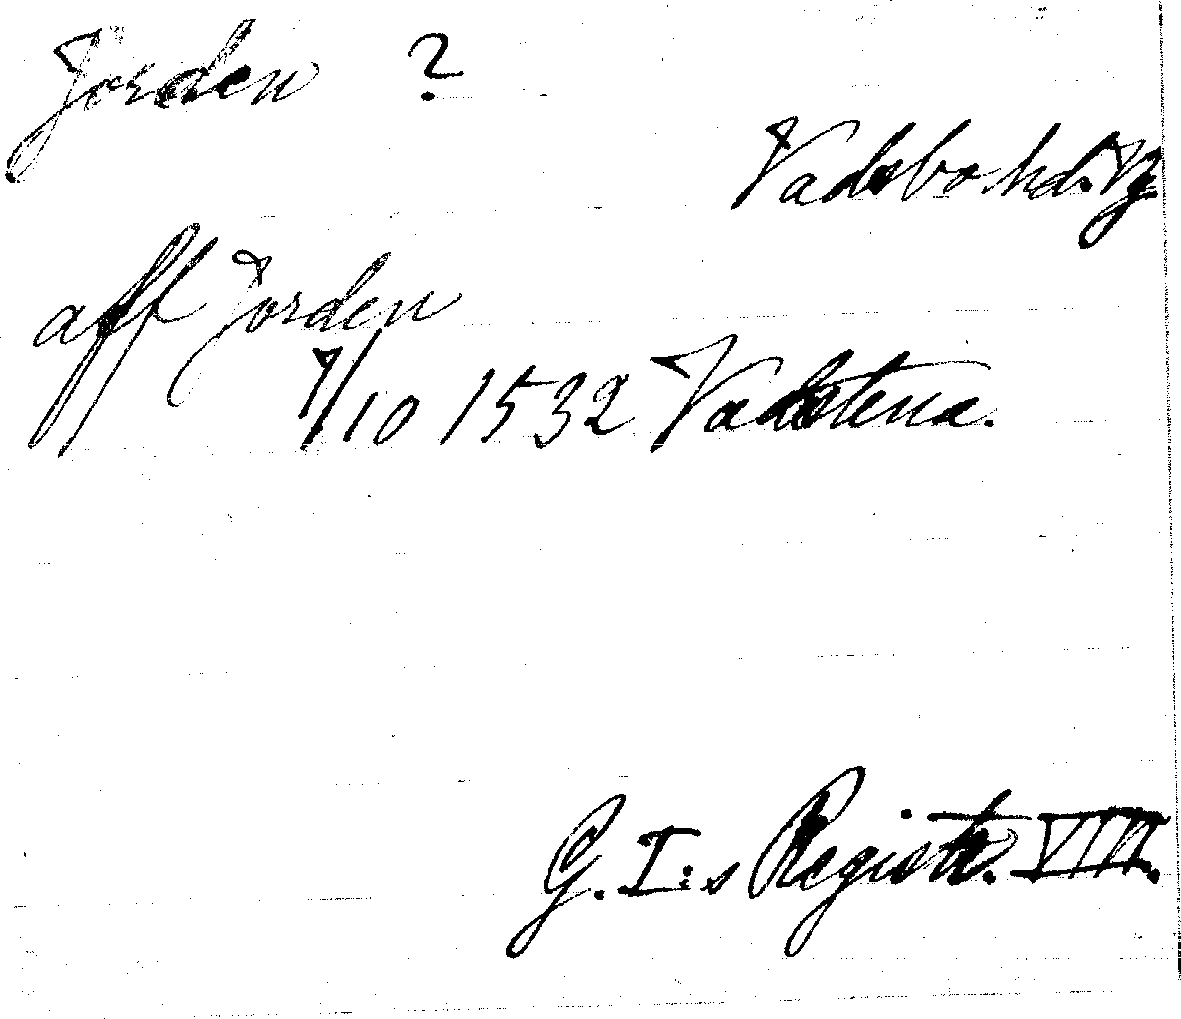 Jorden ?
Vadsbo hd. Vg.
aff Jorden
7/10 1532 Vadstena.
G. I:s Registr. VIII.